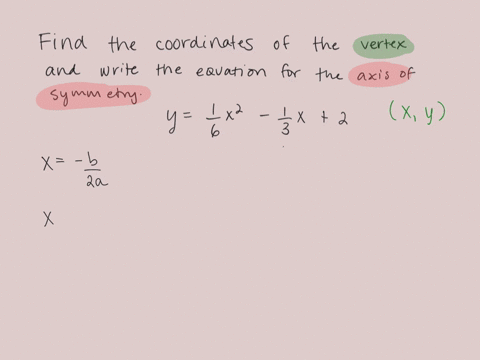 Find the coordinates of the vertex
and write the equation for the axis of
symmetry.
y = 1/6 x² - 1/3 x + 2 (x, y)
x = -b/2a
x